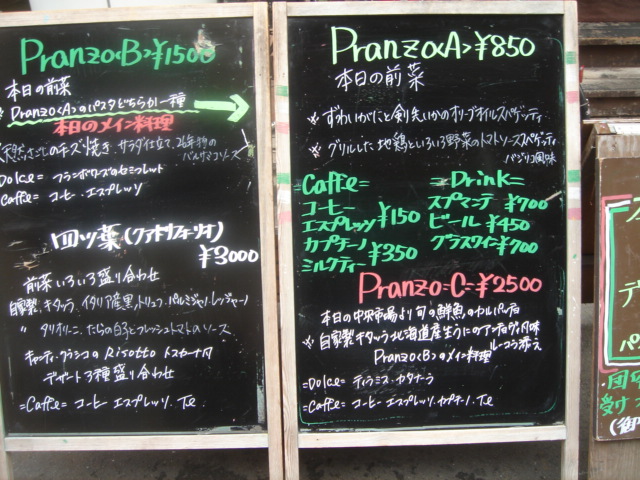 Pranzo<B>¥1500
本日の前菜
Pranzo<A>のパスタどちらか一種
本日のメイン料理
チーズ焼き サラダ仕立て、24年物の
バルサミコソース
Dolce= フランボワーズのセミフレット
Caffe= コーヒー.エスプレッソ
四ツ葉(クァトリフォーリオ)
¥3000
前菜いろいろ盛り合わせ
自家製、キタッラ、イタリア産黒トリュフ、パルミジャーノレッジャーノ
〃 タリオリーニ、たらの白子とフレッシュトマトのソース
Risotto トスカーナ風
デザート3種盛り合わせ
=Caffe= コーヒー エスプレッソ. Te
Pranzo<A>¥850
本日の前菜
※ ずわいがにと剣先いかのオリーブオイルスパゲッティ
※ グリルした地鶏といろいろ野菜のトマトソーススパゲッティ
バジリコ風味
=Caffe=
コーヒー
エスプレッソ ¥150
カプチーノ
ミルクティー ¥350
=Drink=
スプマンテ ¥700
ビール ¥450
グラスワイン ¥700
Pranzo=C=¥2500
本日の中央市場より旬の鮮魚のカルパッチョ
※ 自家製キタッラ北海道産生うにのアーリオオーリオ風味
ルーコラ添え
Pranzo<B>のメイン料理
=Dolce= ティラミス・カタラーナ
=Caffe= コーヒー エスプレッソ、カプチーノ、Te
デ
パ
受け
(御